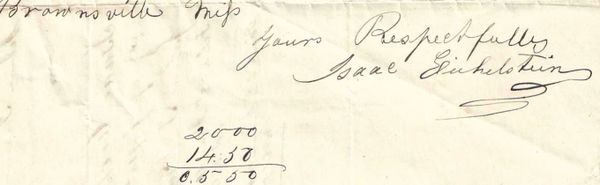 Brownsville Miss
Yours Respectfully
Isaac
2000
14.50
0.550